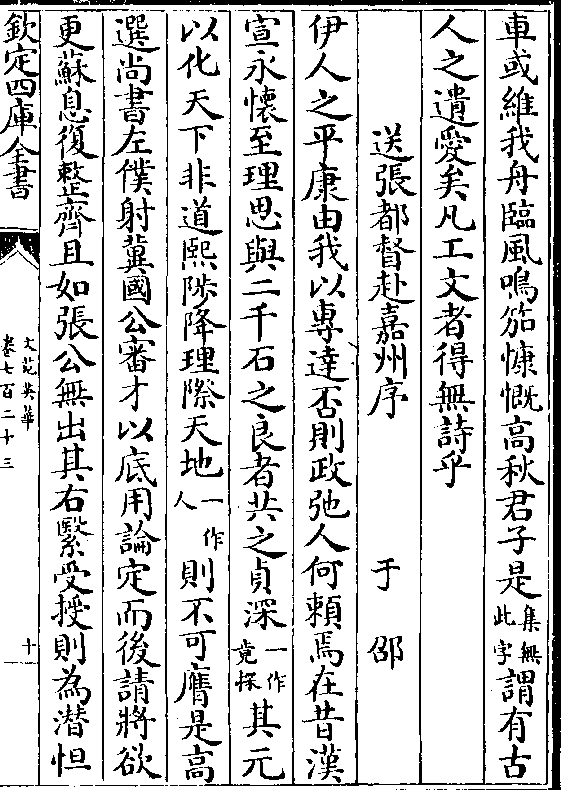 車或維我舟臨風鳴笳慷慨高秋君子是集無此字謂有古
人之遺愛矣凡工文者得無詩乎
送張都督赴嘉州序 于邵
伊人之平康由我以專達否則政弛人何賴焉在昔漢
宣永懷至理思與二千石之良者共之貞深一作竟採其元
以化天下非道熙陟降理際天地一作人則不可膺是高
選尚書左僕射冀國公審才以底用論定而後請將欲
更蘇息復整齊且如張公無出其右繄受授則為潜怛
欽定四庫全書
文苑英華
卷七百二十三
十